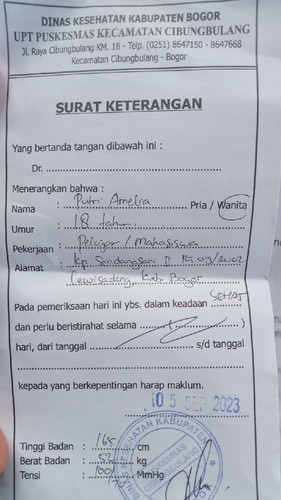 DINAS KESEHATAN KABUPATEN BOGOR
UPT PUSKESMAS KECAMATAN CIBUNGBULANG
Jl. Raya Cibungbulang KM. 18 - Telp. (0251) 8647150 - 8647668
Kecamatan Cibungbulang - Bogor
SURAT KETERANGAN
Yang bertanda tangan dibawah ini :
Dr. ........................................................
Menerangkan bahwa :
Nama : Putri Amelia Pria / Wanita
Umur : 18 tahun
Pekerjaan : Pelajar / Mahasiswa
Alamat : Kp. Sandangsari II Rt 03/Rw02
Leuwisadeng Kab. Bogor
Pada pemeriksaan hari ini ybs. dalam keadaan Sehat
dan perlu beristirahat selama ............ (............)
hari, dari tanggal ........................ s/d tanggal
........................................................
kepada yang berkepentingan harap maklum.
05 SEP 2023
Tinggi Badan : 165 cm
Berat Badan : 52 kg
Tensi : 100/ MmHg
KESEHATAN KABUPATEN
PUSKESMAS
CIBUNGBULANG